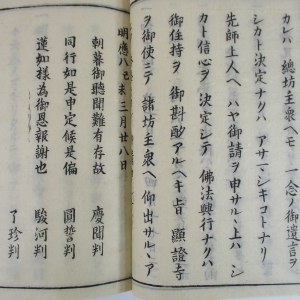 カレハ 總坊主衆ヘモ 一念ノ御遺言ヲ
シカト決定ナクハ アサマシキコトナリ
先師上人ヘハヤ御請ヲ申サル、上ハ シ
カト信心ヲ 決定シテ 佛法興行ナクハ
御住持ヲ 御斟酌アルヘキ旨 顯證寺
ヲ御使ニテ 諸坊主衆ヘ 仰出サル、ア
明應八己未三月廿八日
朝暮御聽聞難有存故 慶聞判
同行如是申定候是偏 圓誓判
蓮如様為御恩報謝也 駿河判
了珍判